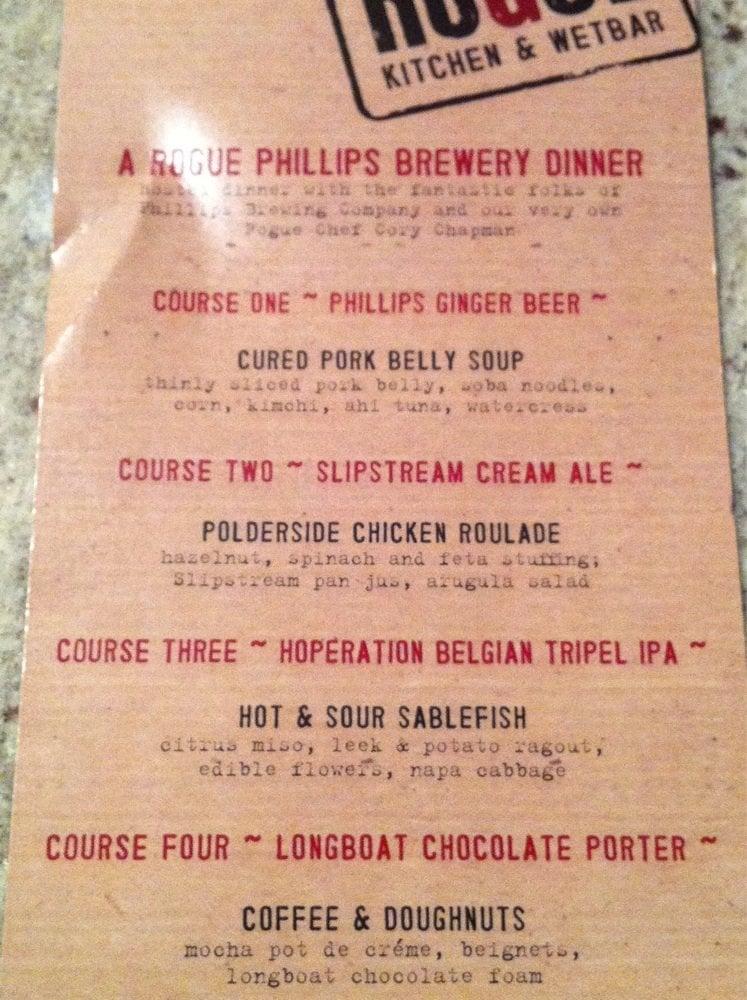 KITCHEN & WETBAR
A ROGUE PHILLIPS BREWERY DINNER
hosted dinner with the fantastic folks of
Phillips Brewing Company and our very own
Rogue Chef Cory Chapman
COURSE ONE ~ PHILLIPS GINGER BEER ~
CURED PORK BELLY SOUP
thinly sliced pork belly, soba noodles,
corn, kimchi, ahi tuna, watercress
COURSE TWO ~ SLIPSTREAM CREAM ALE ~
POLDERSIDE CHICKEN ROULADE
hazelnut, spinach and feta stuffing;
Slipstream pan jus, arugula salad
COURSE THREE ~ HOPERATION BELGIAN TRIPEL IPA ~
HOT & SOUR SABLEFISH
citrus miso, leek & potato ragout,
edible flowers, napa cabbage
COURSE FOUR ~ LONGBOAT CHOCOLATE PORTER ~
COFFEE & DOUGHNUTS
mocha pot de créme, beignets,
longboat chocolate foam